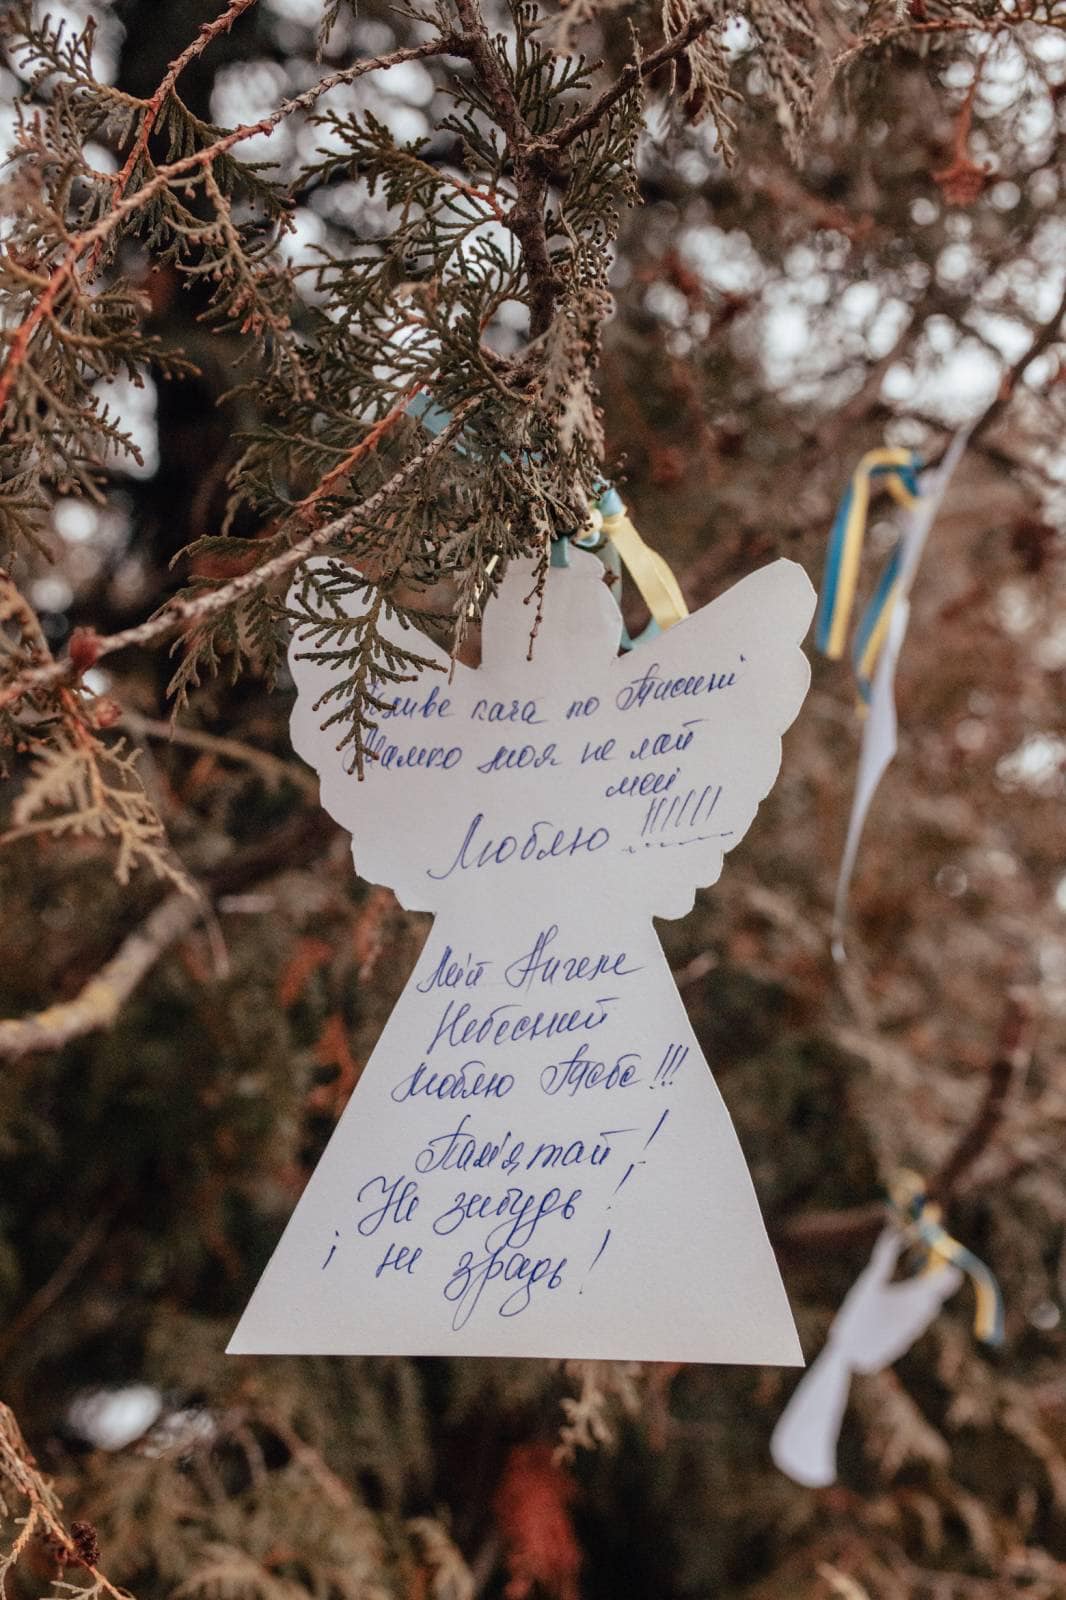 Пливе кача по Тисині
Мамко моя не лай
мені
Люблю !!!!!!
Мій Янголе
Небесний
люблю Тебе!!!
Пам'ятай!
Не забудь!
і не зрадь!